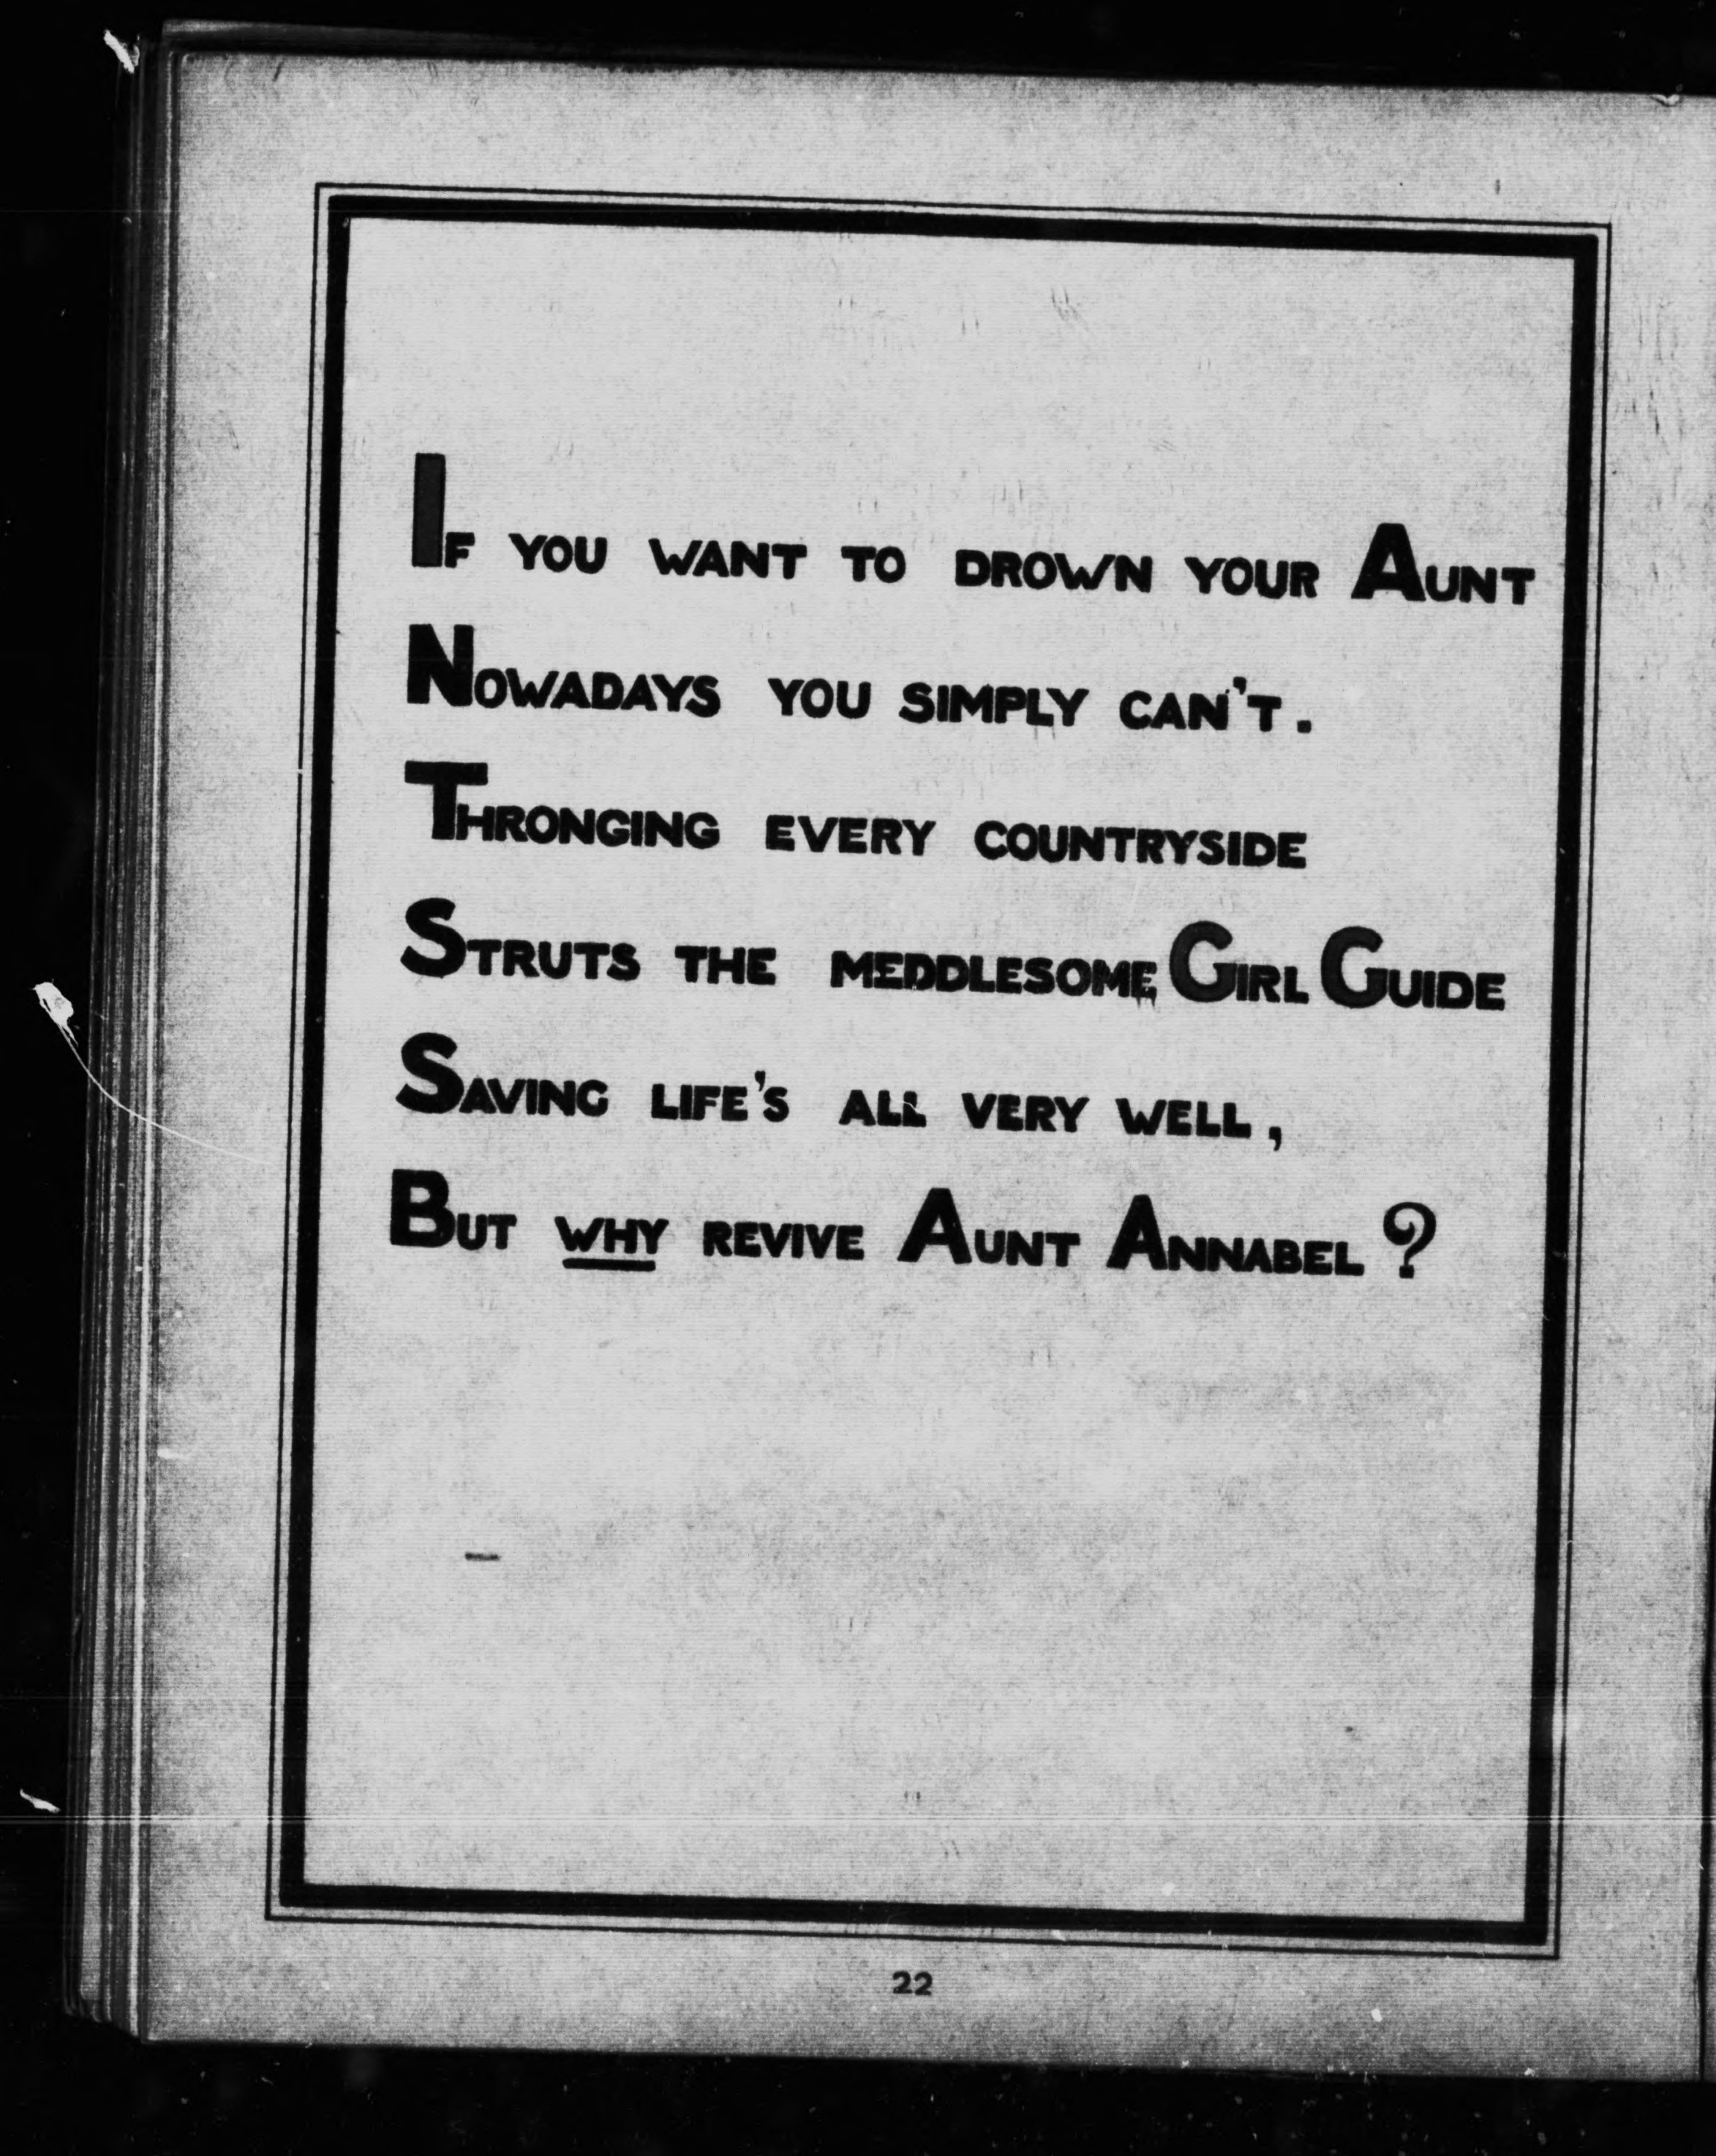 If you want to drown your Aunt
Nowadays you simply can't.
Thronging every countryside
Struts the meddlesome Girl Guide
Saving life's all very well,
But why revive Aunt Annabel?
22